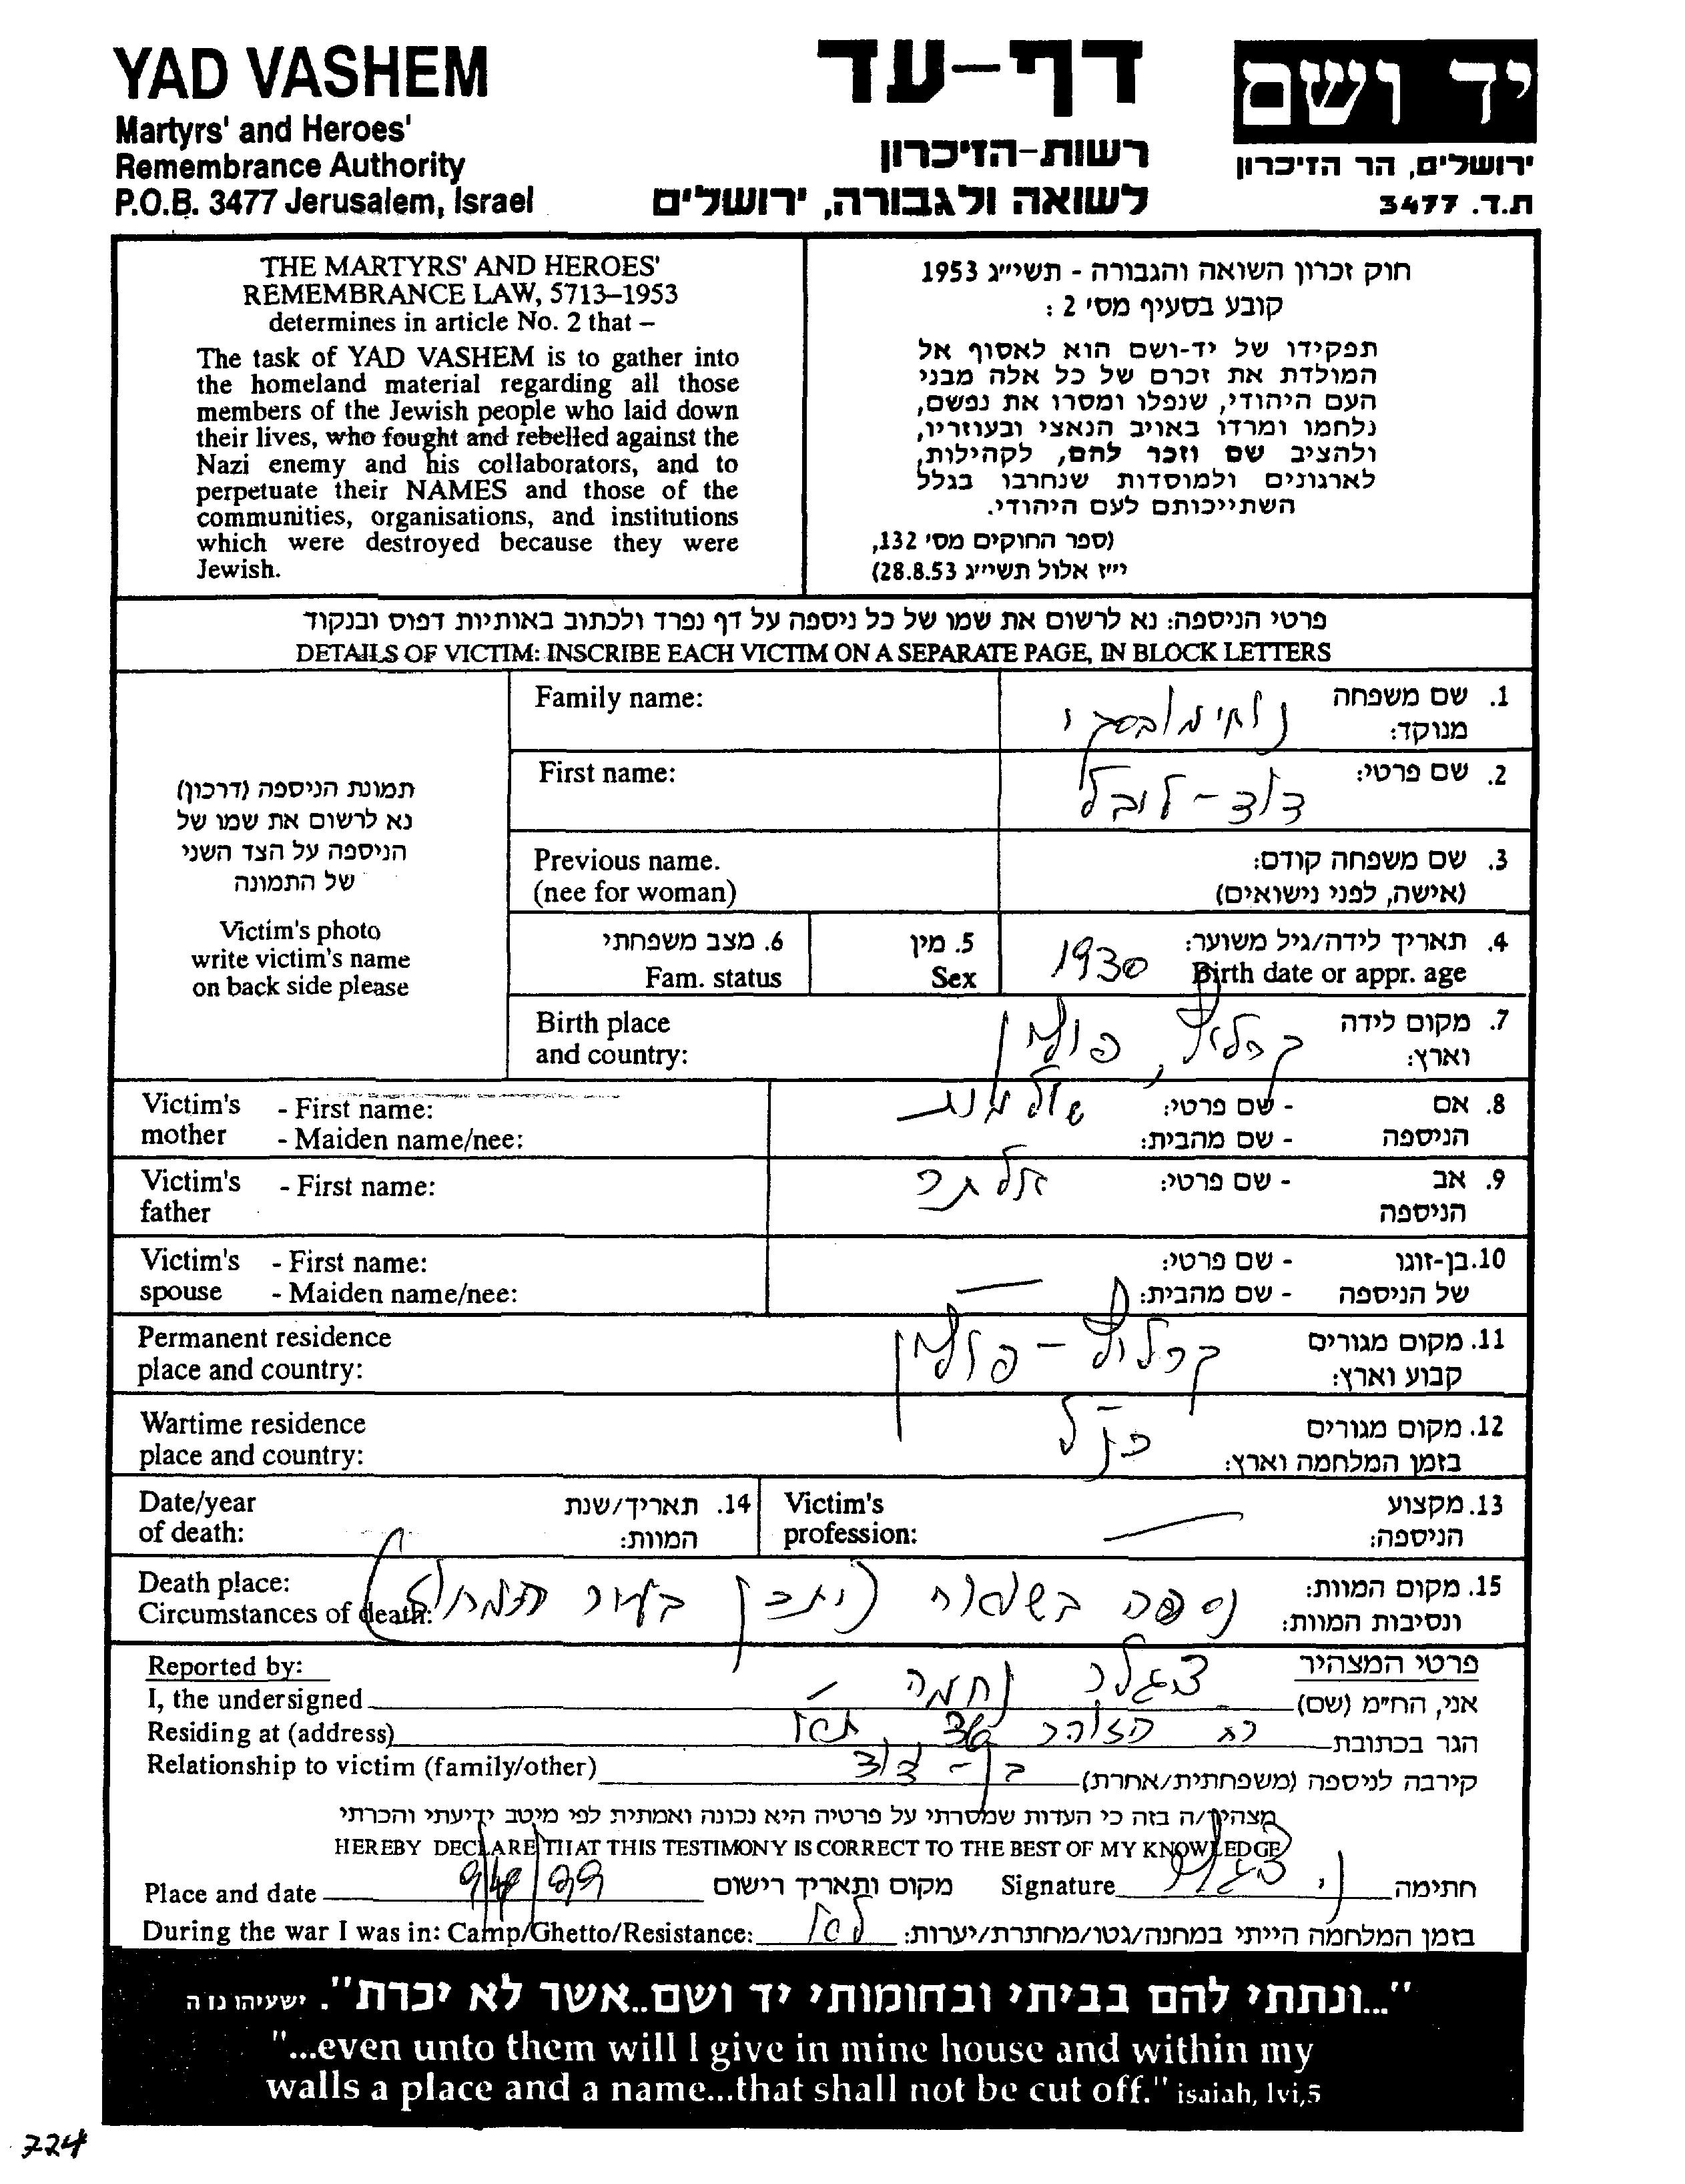 YAD VASHEM
Martyrs' and Heroes'
Remembrance Authority
P.O.B. 3477 Jerusalem, Israel
דף-עד
רשות-הזיכרון
לשואה ולגבורה, ירושלים
יד ושם
ירושלים, הר הזיכרון
ת.ד. 3477
THE MARTYRS' AND HEROES'
REMEMBRANCE LAW, 5713–1953
determines in article No. 2 that –
The task of YAD VASHEM is to gather into
the homeland material regarding all those
members of the Jewish people who laid down
their lives, who fought and rebelled against the
Nazi enemy and his collaborators, and to
perpetuate their NAMES and those of the
communities, organisations, and institutions
which were destroyed because they were
Jewish.
חוק זכרון השואה והגבורה - תשי״ג 1953
קובע בסעיף מס' 2 :
תפקידו של יד-ושם הוא לאסוף אל
המולדת את זכרם של כל אלה מבני
העם היהודי, שנפלו ומסרו את נפשם,
נלחמו ומרדו באויב הנאצי ובעוזריו,
ולהציב שם וזכר להם, לקהילות,
לארגונים ולמוסדות שנחרבו בגלל
השתייכותם לעם היהודי.
(ספר החוקים מס' 132,
י״ז אלול תשי״ג 28.8.53)
פרטי הניספה: נא לרשום את שמו של כל ניספה על דף נפרד ולכתוב באותיות דפוס ובנקוד
DETAILS OF VICTIM: INSCRIBE EACH VICTIM ON A SEPARATE PAGE, IN BLOCK LETTERS
תמונת הניספה (דרכון)
נא לרשום את שמו של
הניספה על הצד השני
של התמונה
Victim's photo
write victim's name
on back side please
Family name:
1. שם משפחה
מנוקד:
First name:
2. שם פרטי:
דוד - לובל
Previous name.
(nee for woman)
3. שם משפחה קודם:
(אישה, לפני נישואים)
6. מצב משפחתי
Fam. status
5. מין
Sex
4. תאריך לידה/גיל משוער:
Birth date or appr. age
1930
Birth place
and country:
7. מקום לידה
וארץ:
פולין
Victim's mother - First name:
- Maiden name/nee:
8. אם הניספה - שם פרטי:
- שם מהבית:
שולמית
Victim's father - First name:
9. אב הניספה - שם פרטי:
אלתר
Victim's spouse - First name:
- Maiden name/nee:
10. בן-זוגו של הניספה - שם פרטי:
- שם מהבית:
Permanent residence
place and country:
11. מקום מגורים
קבוע וארץ:
פולין
Wartime residence
place and country:
12. מקום מגורים
בזמן המלחמה וארץ:
כנ"ל
Date/year
of death:
14. תאריך/שנת
המוות:
Victim's
profession:
13. מקצוע
הניספה:
Death place:
Circumstances of death:
15. מקום המוות:
ונסיבות המוות:
נספה בשואה (יתכן
Reported by:
פרטי המצהיר
I, the undersigned
אני, הח״מ (שם)
ציגלר נחמה
Residing at (address)
הגר בכתובת
הזוהר
Relationship to victim (family/other)
קירבה לניספה (משפחתית/אחרת)
בן - דוד
מצהיר/ה בזה כי העדות שמסרתי על פרטיה היא נכונה ואמתית לפי מיטב ידיעתי והכרתי
HEREBY DECLARE THAT THIS TESTIMONY IS CORRECT TO THE BEST OF MY KNOWLEDGE
Place and date
מקום ותאריך רישום
Signature
חתימה
During the war I was in: Camp/Ghetto/Resistance:
בזמן המלחמה הייתי במחנה/גטו/מחתרת/יערות:
"...ונתתי להם בביתי ובחומותי יד ושם..אשר לא יכרת". ישעיהו נו ה
"...even unto them will I give in mine house and within my
walls a place and a name...that shall not be cut off." isaiah, lvi,5
724